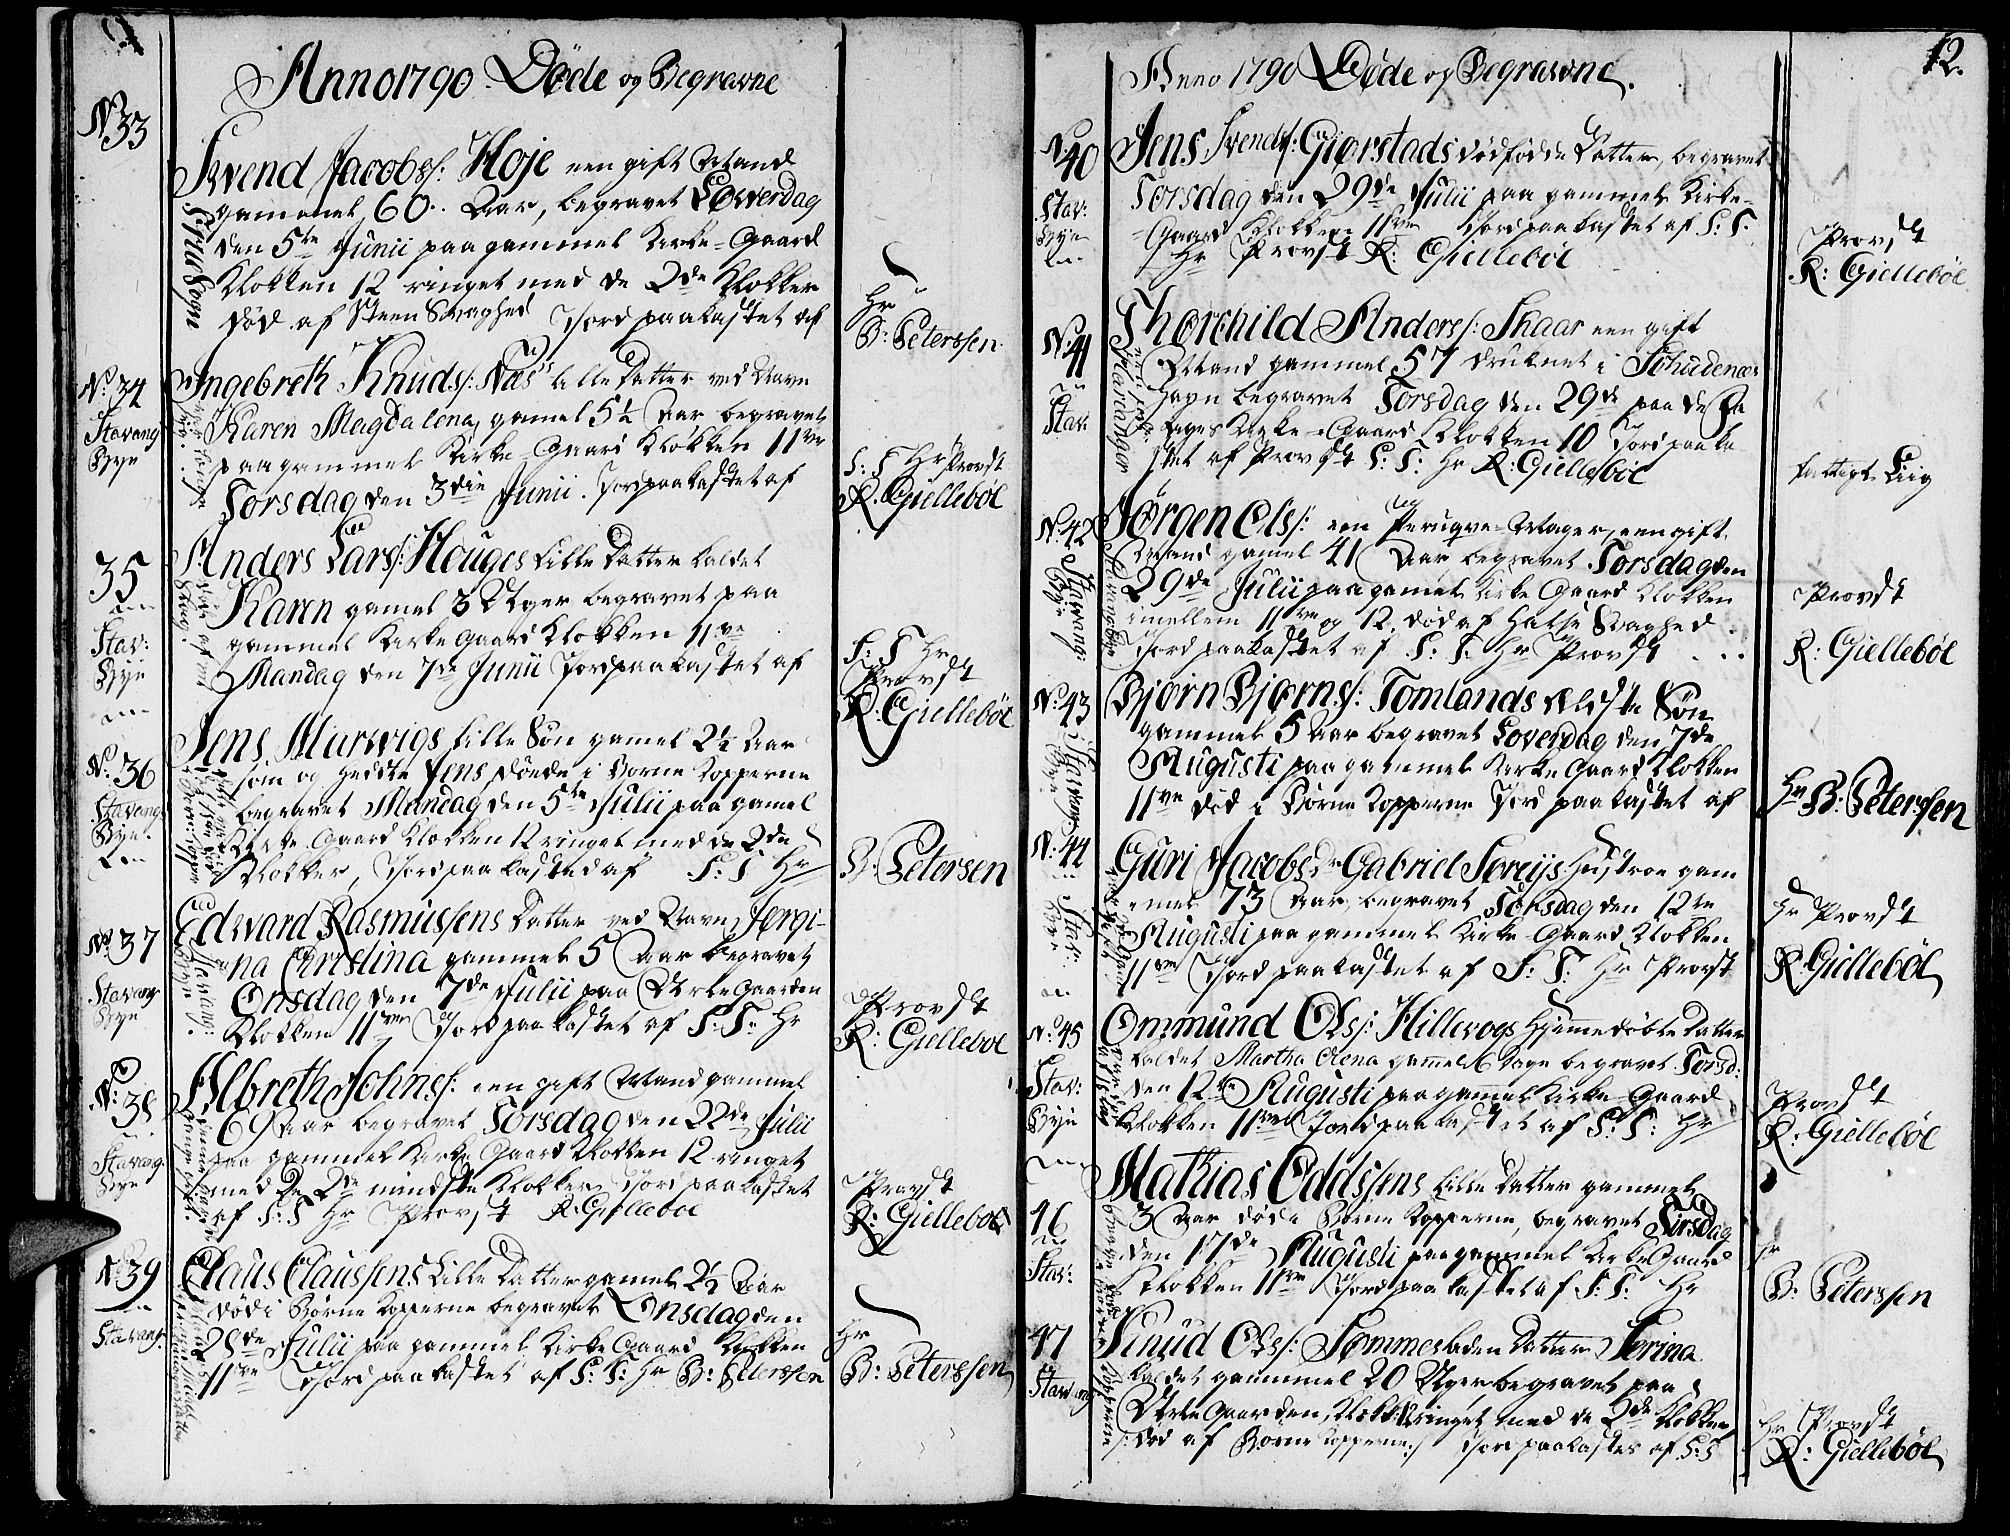 Anno 1790 Døde og Begravne
No 33
Svend Jacobs: Hoje een gift Mand
gammel, 60. Aar, begravet Löverdag
den 5te Junii paa gammel Kirke-Gaard
Klokken 12 ringet med de 2de Klokker
død af Steen Svaghed Jord paakastet af
Hr
B: Peterssen
No. 34
Stavang
Bye
Ingebreth Knuds: Næs's lille Datter ved Navn
Karen Magdalena, gamel 5½ Aar begravet
paa gammel Kirke-Gaard Klokken 11ve
Torsdag den 3die Junii. Jord paakastet af
S: T Hr Provst
R. Giellebøl
35
Stav:
Bye
Anders Lars: Houges Lille Datter kaldet
Karen gamel 3 Uger begravet paa
gammel Kirke Gaard Klokken 11ve
Mandag den 7de Junii Jord paakastet af
S: T Hr
Provst
R: Giellebøl
No: 36
Stavang
Bye.
Jens Marwigs Lille Søn gamel 2½ Aar
som og hedte Jens, døde i Børne Kopperne
begravet Mandag den 5te Julii paa gamel
Kirke Gaard Klokken 12 ringet med de 2de
Klokker, Jord paakasted af S: T Hr
B: Petersen
No 37
Stavang
Bye
Edward Rasmussens Datter ved Navn Jørgi-
na Christina gammel 5 Aar begravet
Onsdag den 7de Julii paa Kirke Gaarden
Klokken 11ve Jord paakastet af S: T: Hr
Provst
R: Giellebøl
No: 38
Stavang.
Bye
Albreth Johns: een gift Mand gammel
69 Aar begravet Torsdag den 22de Julii
paa gammel Kirke Gaard Klokken 12 ringet
med De 2de mindste Klokker Jord paakastet
af S: T Hr Provst R. Giellebøl
Provst
R: Giellebøl
No 39
Stavang:
Claus Claussens Lille Datter gamel 2½ Aar
død i Børne Kopperne begravet Onsdag den
28de Julii paa gammel Kirke Gaard Klokken
11ve Jord paakastet af S: T: Hr B: Peterssen
Hr
B: Peterssen
12.
Anno 1790 Døde og Begravne.
No 40
Stav:
Bye
Jens Svends: Giørstads dødfødde Datter, begravet
Torsdag den 29de Julii paa gammel Kirke-
Gaard Klokken 11ve Jord paakastet af S: T.
Hr Provst R: Giellebøl
Provst
R: Giellebøl
No: 41
Stav:
Thorchild Anders: Skaar een gift
Mand gammel 57 druknet i
havn begravet Torsdag den 29de paa de Fa
tiges Kirke-Gaard Klokken 10 Jord paaka
stet af Provst S: T: Hr R: Giellebøl
fattigt Liig
No. 42
Stavang:
Bye
Jørgen Ols: een Peruqve-Mager, een gift
Mand gamel 41 Aar begravet Torsdag den
29de Julii paa gamel Kirke Gaard Klokken
imellem 11ve og 12. død af Halse Svaghed
Jord paakastet af S. T. Hr Provst
Provst
R: Giellebøl
No: 43
Stavang
Bye
Bjørn Bjørns: Tomlands Ældste Søn
gammel 5 Aar begravet Loverdag den 7de
Augusti paa gammel Kirke Gaard Klokken
11ve død i Børne Kopperne Jord paakastet af
Hr B: Peterssen
No: 44
Stav:
Bye
Guri Jacobsdr Gabriel Soreijs Hustroe gam
mel 73 Aar, begravet Torsdag den 12te
Augusti paa gammel Kirke-Gaard Klokken
11ve Jord paakastet af S: T: Hr Provst
Hr Provst
R: Giellebøl
No: 45
Stav:
Bye
Ommund Ols: Hillevogs Hjemmedøbte Datter
kaldet Martha Olena gammel 6 Dage begravet Torsd:
den 12te Augusti paa gammel Kirke-Gaard
Klokken 11ve Jord paakastet af S: T: Hr
Provst
R: Giellebøl
46
Stav:
Mathias Oddssens Lille Datter gammel
3 Aar død i Børne Kopperne, begravet Tirsdag
den 17de Augusti paa gammel Kirke Gaard
Klokken 11ve Jord paakastet af S: T: Hr
Hr
B: Peterssen
47
Stavang
Knud Ols: Sømmes liden Datter Serina
kaldet gammel 20 Uger begravet paa
Kirke Gaarden, Klok: 12 ringet med de 2de Klokker
/: død af Børne Kopperne :/ Jord paakastet af S: T
Hr Provst
R: Giellebøl